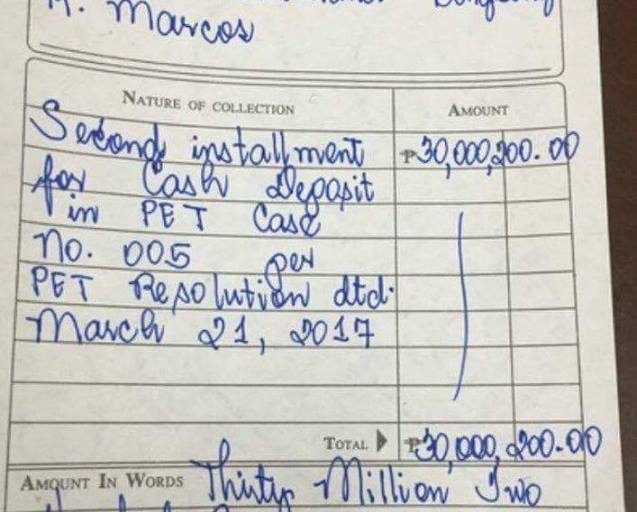 Marcos
NATURE OF COLLECTION AMOUNT
Second installment ₱30,000,200.00
for Cash Deposit
in PET Case
No. 005 per
PET Resolution dtd.
March 21, 2017
TOTAL ▶ ₱30,000,200.00
AMOUNT IN WORDS Thirty Million Two